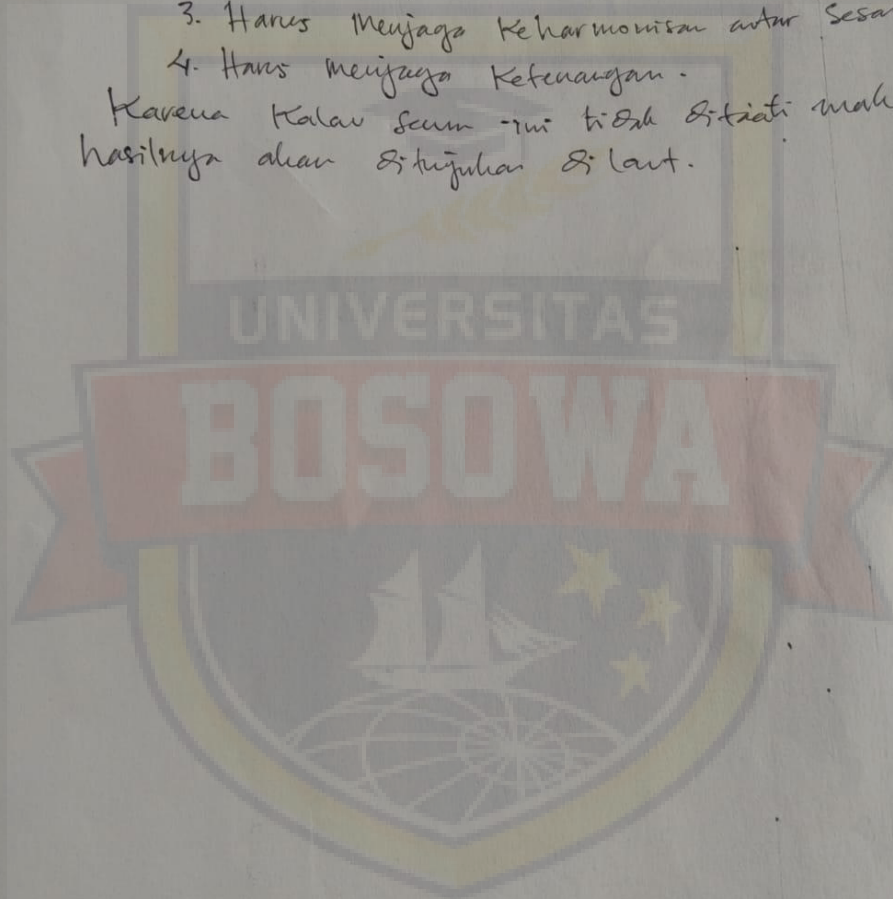 3. Harus Menjaga Keharmonisan antar Sesa
4. Harus menjaga Ketenangan.
Karena Kalau semua ini tidak ditaati mak
hasilnya akan ditujukan di laut.
UNIVERSITAS
BOSOWA